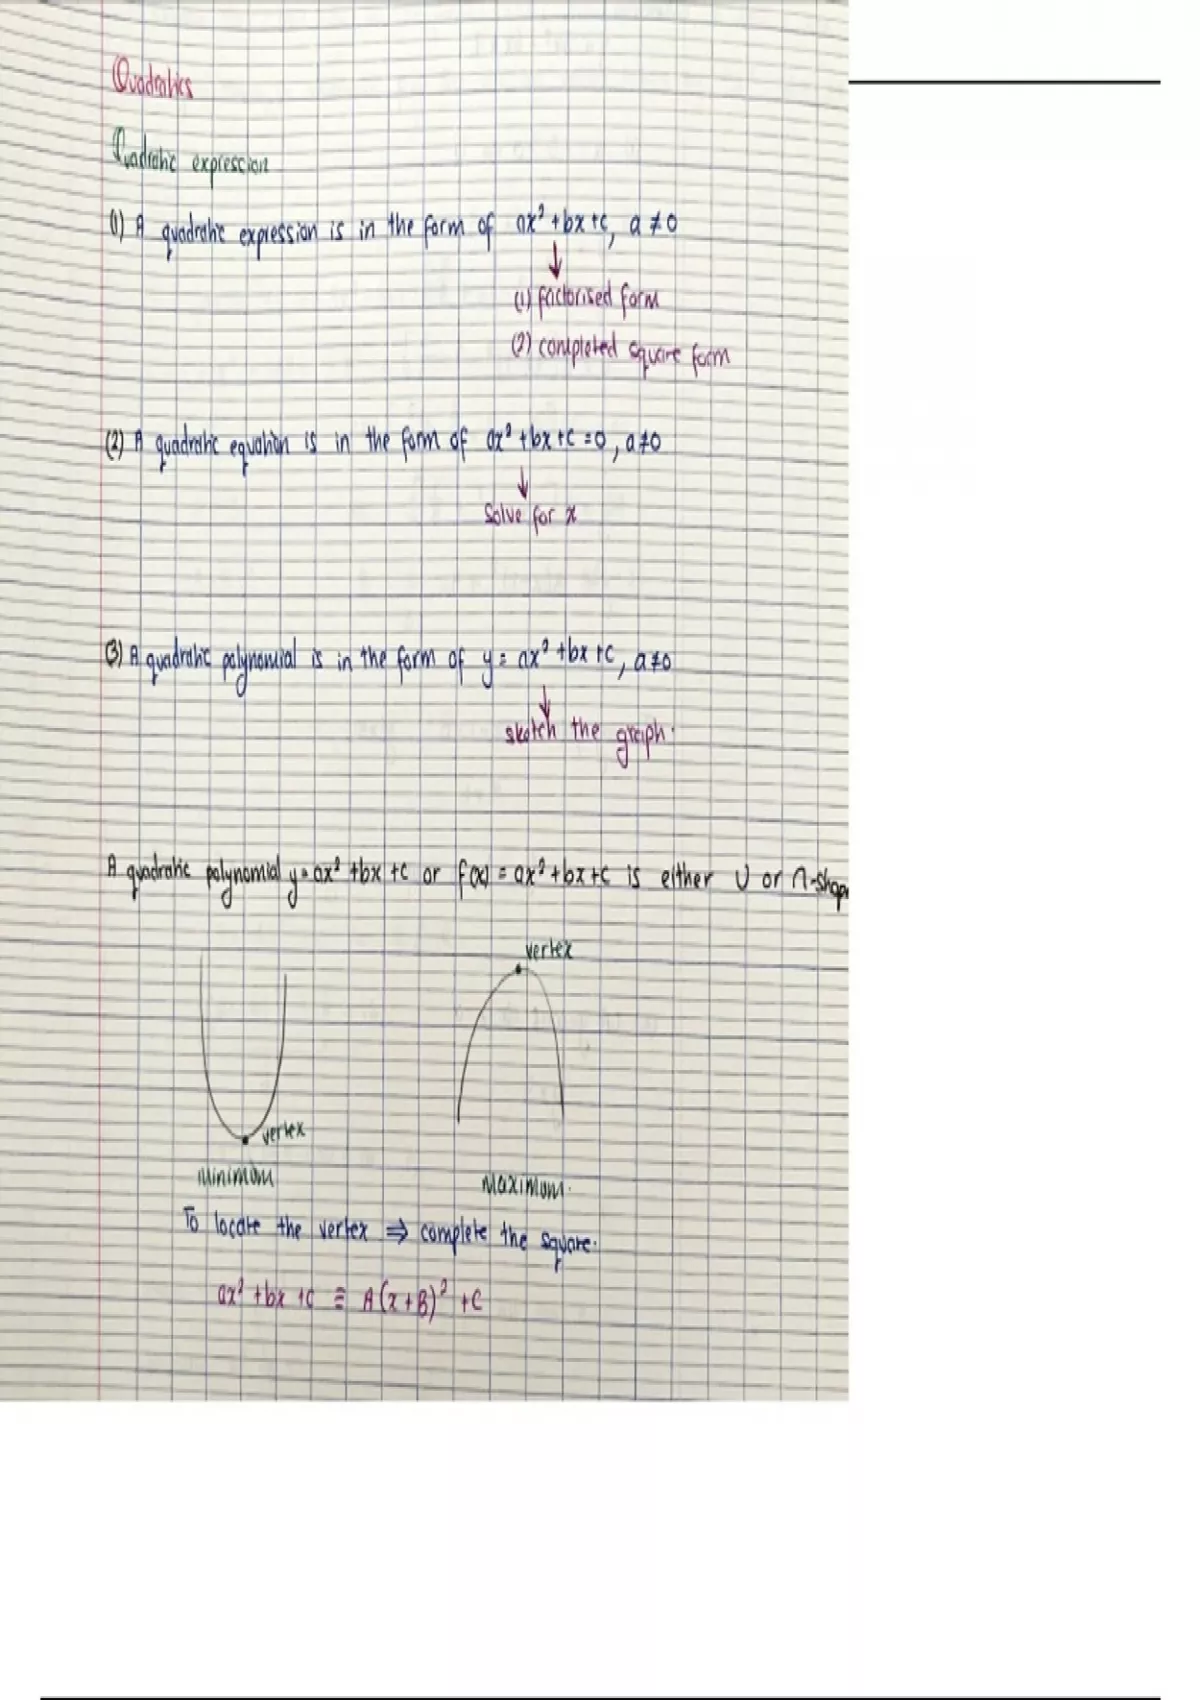 Quadratics
Quadratic expression
(1) A quadratic expression is in the form of ax² + bx + c, a ≠ 0
(1) factorised form
(2) completed square form
(2) A quadratic equation is in the form of ax² + bx + c = 0, a ≠ 0
Solve for x
(3) A quadratic polynomial is in the form of y = ax² + bx + c, a ≠ 0
sketch the graph.
A quadratic polynomial y = ax² + bx + c or f(x) = ax² + bx + c is either ∪ or ∩-shape
vertex
vertex
Minimum
Maximum.
To locate the vertex ⇒ complete the square.
ax² + bx + c ≡ A(x + B)² + C